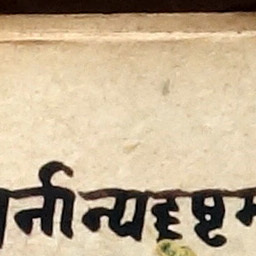 र्तान्यदृष्टम